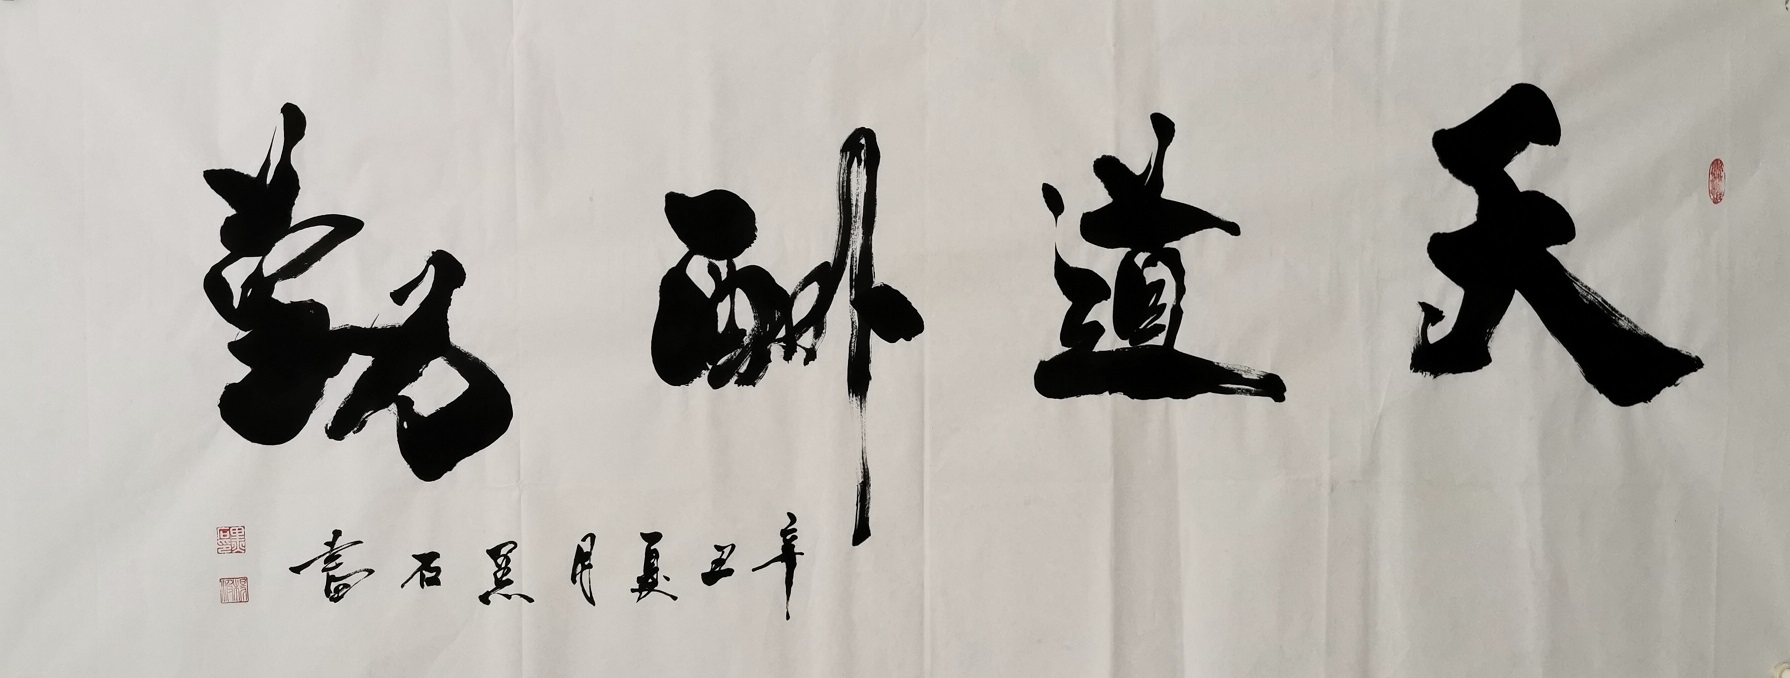 天道酬勤
辛丑夏月黑石書